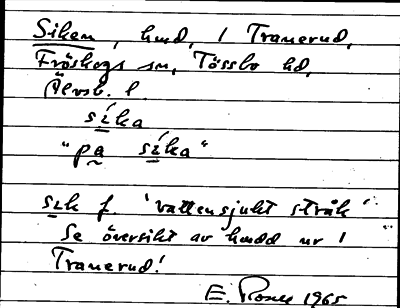 Siken, hmd, / Tranerud,
Fröskogs sn, Tössbo hd,
Älvsb. l.
síka
"pa síka"
sik f. 'vattensjukt stråk'
Se översikt av hmdd nr 1
Tranerud!
E. 1965